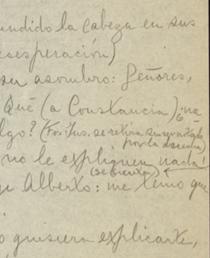 undido la cabeza en sus
desesperación)
su asombro: Señores,
Qué (a Constancia) ¿no
lgo? (Fortus, se retira
por la derecha)
no le expliquen nada!
(se sienta)
Alberto: me temo que
o quisiera explicarte,